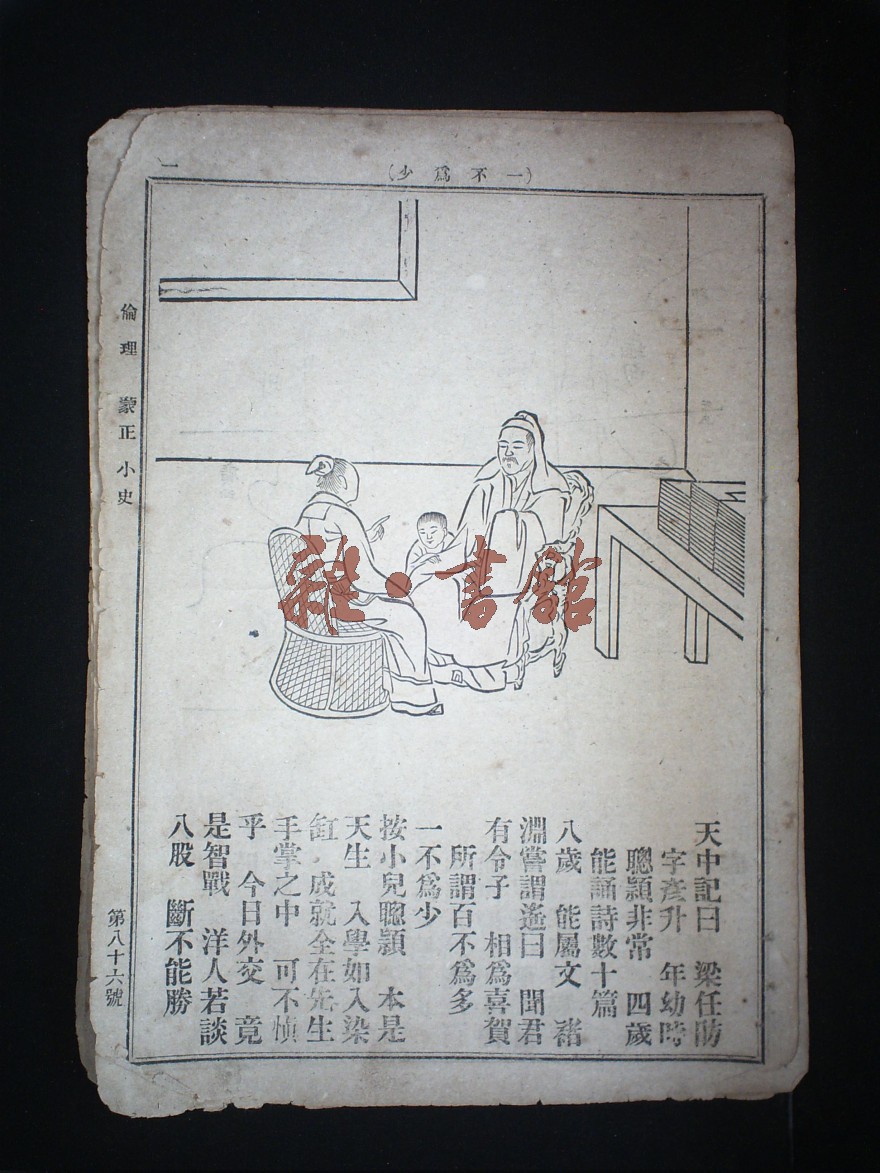 (一不爲少)
一
倫理 蒙正小史
第八十六號
天中記曰 梁任昉
字彥升 年幼時
聰穎非常 四歲
能誦詩數十篇
八歲 能屬文 褚
淵嘗謂遙曰 聞君
有令子 相爲喜賀
所謂百不爲多
一不爲少
按小兒聰穎 本是
天生 入學如入染
缸 成就全在先生
手掌之中 可不慎
乎 今日外交 竟
是智戰 洋人若談
八股 斷不能勝
雜·書館